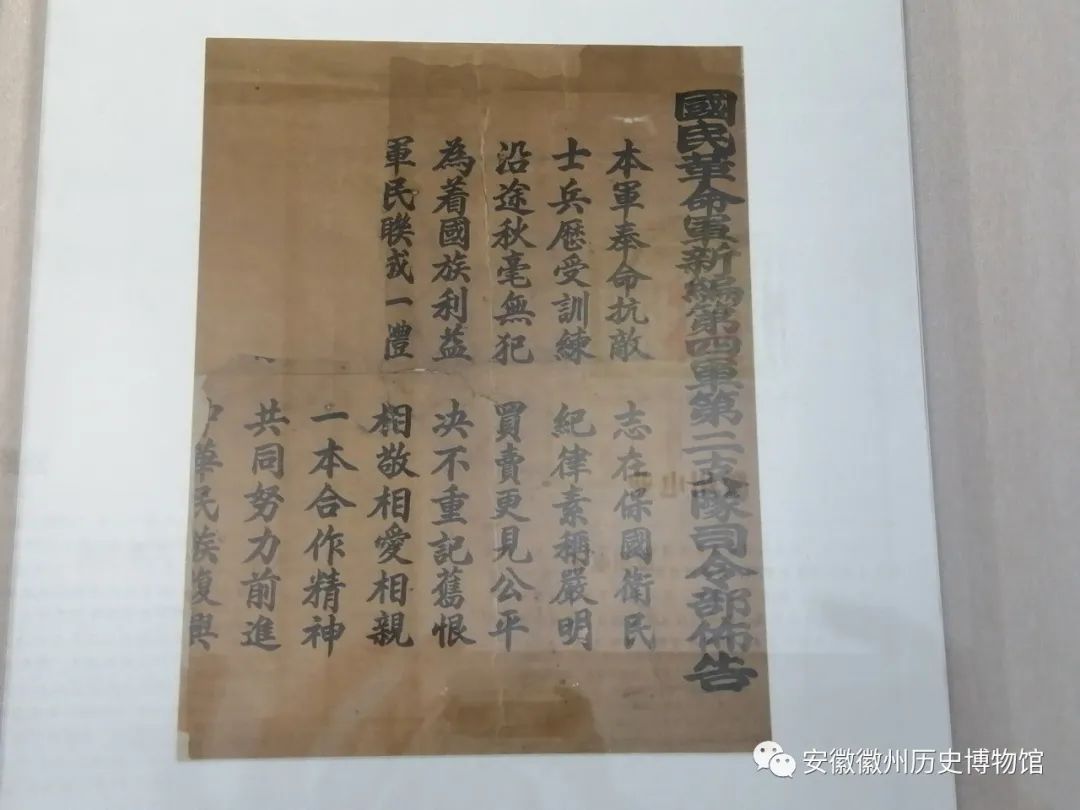 國民革命軍新編第四軍第二支隊司令部佈告
本軍奉命抗敵 志在保國衛民
士兵歷受訓練 紀律素稱嚴明
沿途秋毫無犯 買賣更見公平
為着國族利益 决不重記舊恨
軍民聯成一體 相敬相愛相親
一本合作精神
共同努力前進
中華民族復興
安徽徽州历史博物馆